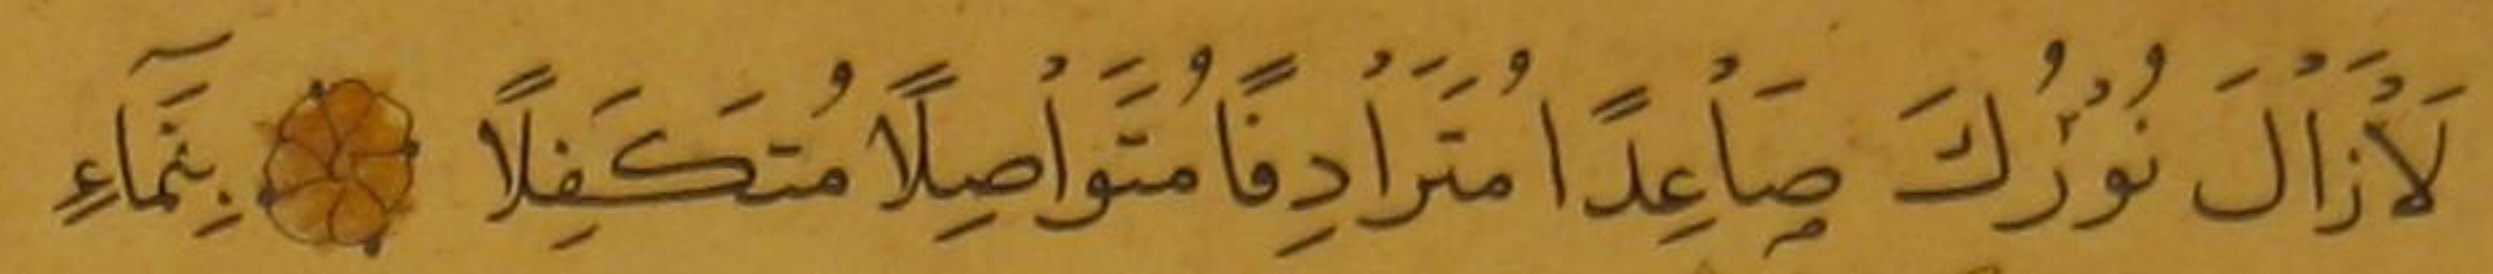 لَاْزَاْلَ نُوْرُكَ صَاْعِدًا مُتَرَاْدِفًا مُتَوَاْصِلًا مُتَكَفِلًا ۞ بِنَمَآءِ